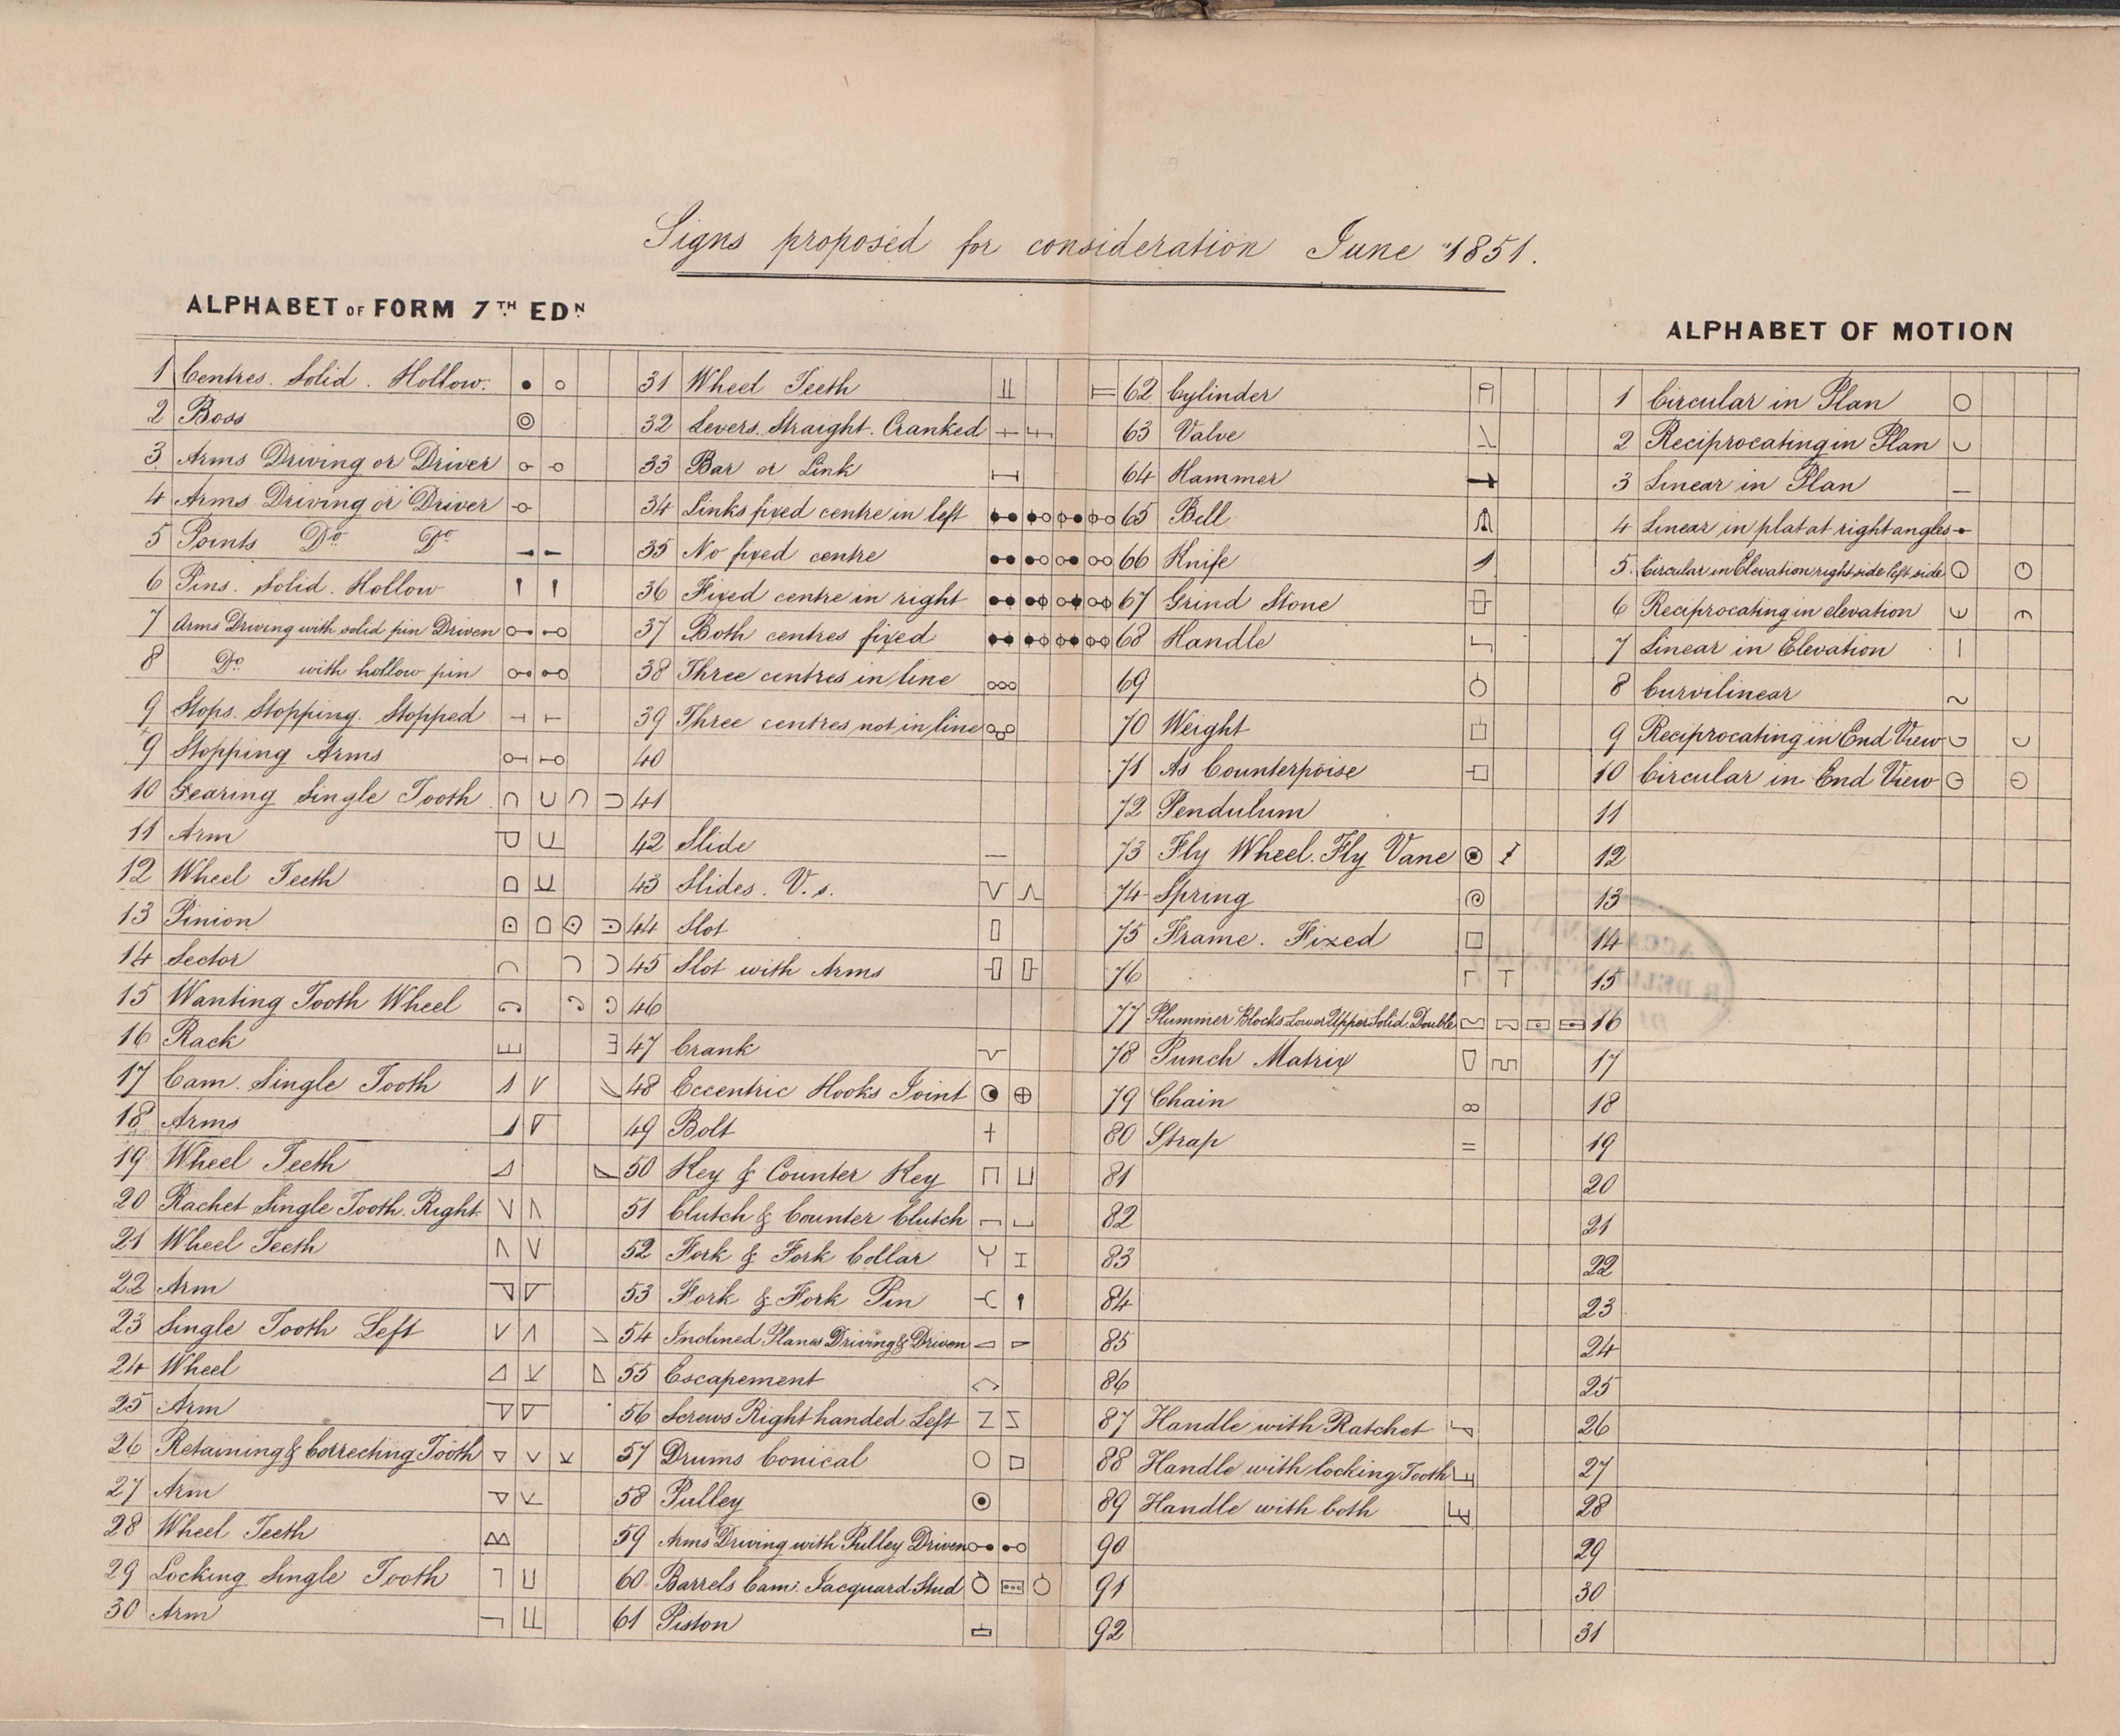 Signs proposed for consideration June 1851.
ALPHABET OF FORM 7TH EDN
1 Centres. Solid. Hollow.
2 Boss
3 Arms Driving or Driver
4 Arms Driving or Driver
5 Points Do Do
6 Pins. Solid. Hollow
7 Arms Driving with solid pin Driven
8 Do with hollow pin
9 Stops. Stopping. Stopped
9 Stopping Arms
10 Gearing Single Tooth
11 Arm
12 Wheel Teeth
13 Pinion
14 Sector
15 Wanting Tooth Wheel
16 Rack
17 Cam. Single Tooth
18 Arms
19 Wheel Teeth
20 Rachet Single Tooth. Right
21 Wheel Teeth
22 Arm
23 Single Tooth Left
24 Wheel
25 Arm
26 Retaining & Correcting Tooth
27 Arm
28 Wheel Teeth
29 Locking Single Tooth
30 Arm
31 Wheel Teeth
32 Levers. Straight. Cranked
33 Bar or Link
34 Links fixed centre in left
35 No fixed centre
36 Fixed centre in right
37 Both centres fixed
38 Three centres in line
39 Three centres not in line
40
41
42 Slide
43 Slides. V.s.
44 Slot
45 Slot with Arms
46
47 Crank
48 Eccentric Hooks Joint
49 Bolt
50 Key & Counter Key
51 Clutch & Counter Clutch
52 Fork & Fork Collar
53 Fork & Fork Pin
54 Inclined Planes Driving & Driven
55 Escapement
56 Screws Right handed Left
57 Drums Conical
58 Pulley
59 Arms Driving with Pulley Driven
60 Barrels Cam: Jacquard Stud
61 Piston
62 Cylinder
63 Valve
64 Hammer
65 Bell
66 Knife
67 Grind Stone
68 Handle
69
70 Weight
71 As Counterpoise
72 Pendulum
73 Fly Wheel. Fly Vane
74 Spring
75 Frame. Fixed
76
77 Plummer Blocks Lower Upper Solid. Double
78 Punch Matrix
79 Chain
80 Strap
81
82
83
84
85
86
87 Handle with Ratchet
88 Handle with locking Tooth
89 Handle with both
90
91
92
ALPHABET OF MOTION
1 Circular in Plan
2 Reciprocating in Plan
3 Linear in Plan
4 Linear in plat at right angles
5 Circular in Elevation right side left side
6 Reciprocating in elevation
7 Linear in Elevation
8 Curvilinear
9 Reciprocating in End View
10 Circular in End View
11
12
13
14
15
16
17
18
19
20
21
22
23
24
25
26
27
28
29
30
31